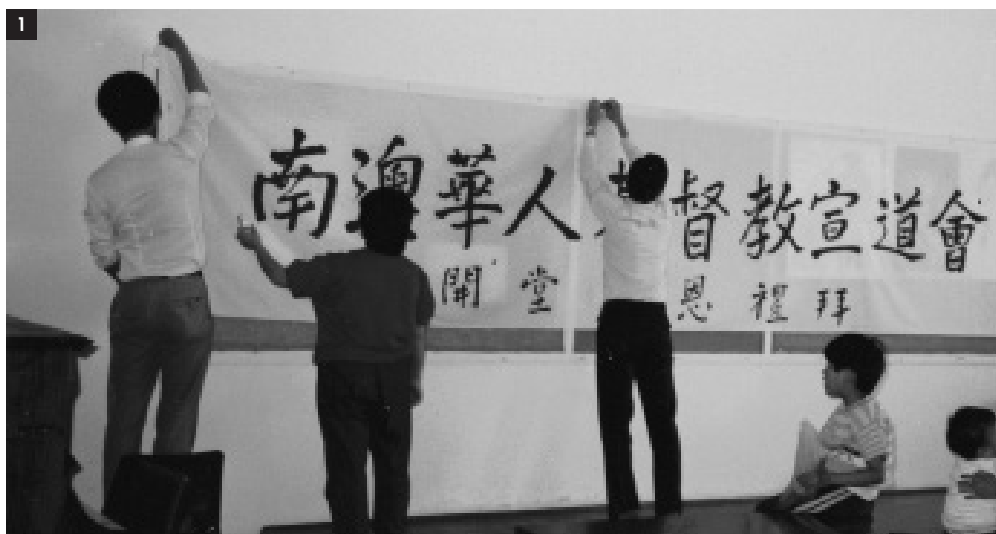 1
南澳華人基督教宣道會
開堂 恩禮拜